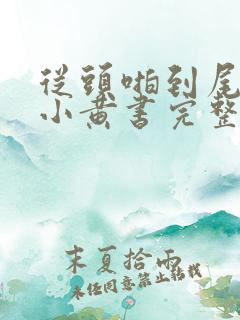 從頭啪到尾
小黃書完整
末夏拾雨
未经同意禁止转载